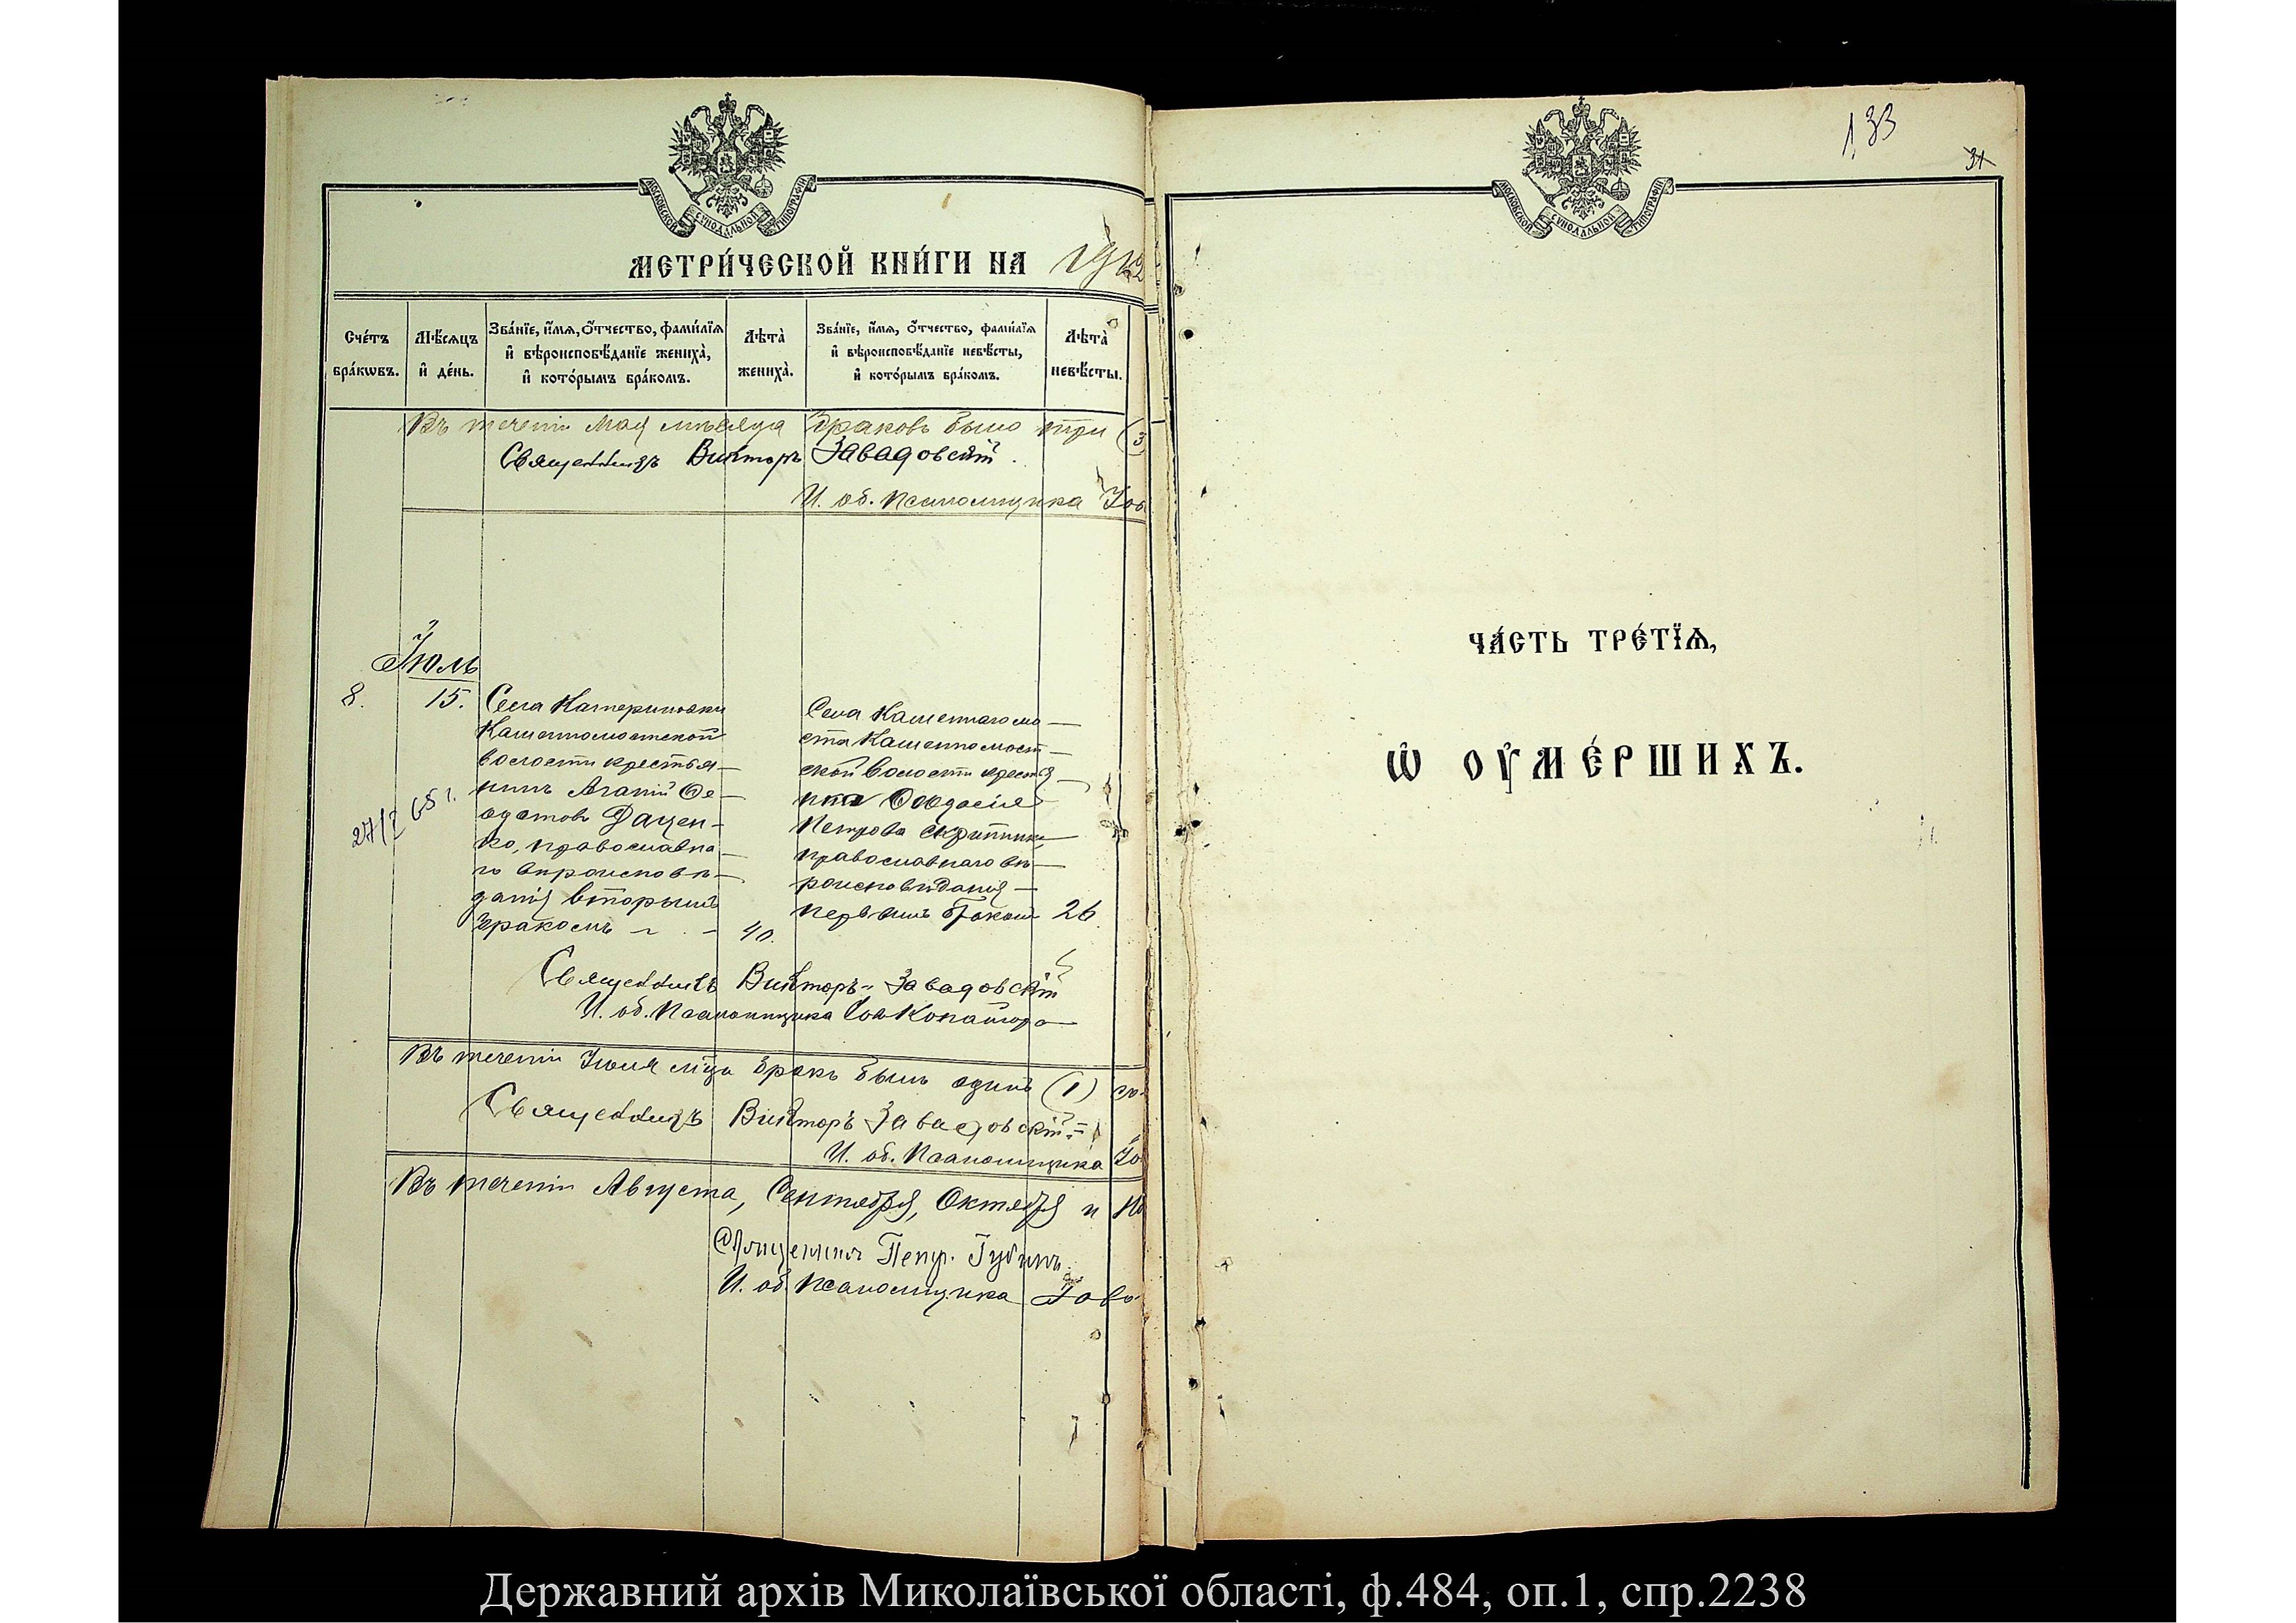 МОСКОВСКОЙ СѴНОДАЛЬНОЙ ТИПОГРАФІИ
МЕТРИ́ЧЕСКОЙ КНИ́ГИ НА 1912
Сче́тъ бра́кѡвъ.
Мѣ́сяцъ и҆ де́нь.
Зва́нїе, и҆́мѧ, ѻ҆́тчество, фами́лїѧ и҆ вѣроисповѣ́данїе жениха̀, и҆ кото́рымъ бра́комъ.
Лѣта̀ жениха̀.
Зва́нїе, и҆́мѧ, ѻ҆́тчество, фами́лїѧ и҆ вѣроисповѣ́данїе невѣ́сты, и҆ кото́рымъ бра́комъ.
Лѣта̀ невѣ́сты.
Въ теченіи Мая мѣсяца браковъ было три (3
Священникъ Викторъ Завадовскій.
И. об. псаломщика
Іюль
8.
15.
Села Катериновки
Каменномостской
волости крестья-
нинъ Агапій Ѳе-
одотовъ Дацен-
ко, православна-
го вѣроисповѣ-
данія вторымъ
бракомъ
40.
Села Каменнаго мо-
ста Каменномост-
ской волости крестья-
нка
Петрова
православнаго вѣ-
роисповѣданія
первымъ бракомъ
26.
27/2 65 г.
Священникъ Викторъ Завадовскій
И. об. Псаломщика
Въ теченіи Іюля м-ца бракъ былъ одинъ (1)
Священникъ Викторъ Завадовскій
И. об. Псаломщика
Въ теченіи Августа, Сентября, Октября и
Священникъ Петр. Губинъ
И. об. псаломщика
133
31
МОСКОВСКОЙ СѴНОДАЛЬНОЙ ТИПОГРАФІИ
ЧА́СТЬ ТРЕ́ТЇѦ,
Ѡ҆ ОУ҆МЕ́РШИХЪ.
Державний архів Миколаївської області, ф.484, оп.1, спр.2238